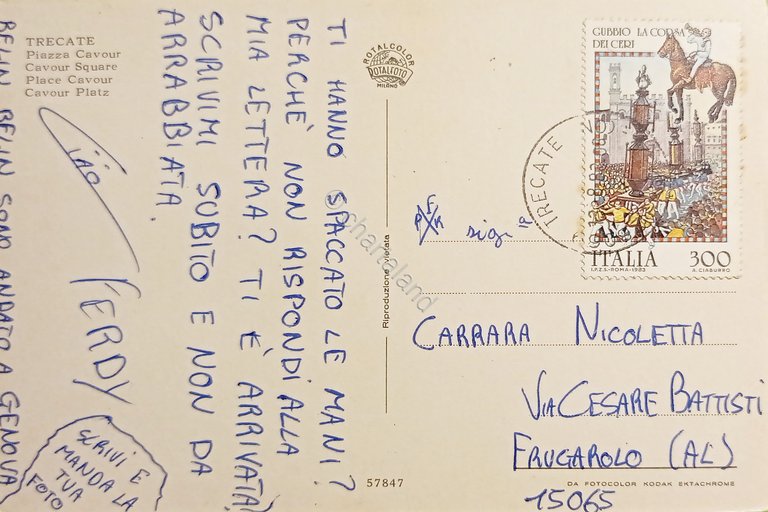 TRECATE
Piazza Cavour
Cavour Square
Place Cavour
Cavour Platz
ROTALCOLOR
ROTALFOTO
MILANO
TI HANNO SPACCATO LE MANI?
PERCHÈ NON RISPONDI ALLA
MIA LETTERA? TI È ARRIVATA?
SCRIVIMI SUBITO E NON DA
ARRABBIATA.
CIAO
FERDY
SCRIVI E
MANDA LA
TUA
FOTO
BELIN BELIN SONO ANDATO A GENOVA
Riproduzione vietata
© charteland
57847
GUBBIO LA CORSA
DEI CERI
ITALIA 300
I.P.Z.S.-ROMA-1983 A. CIABURRO
TRECATE
sig.na
CARRARA NICOLETTA
VIA CESARE BATTISTI
FRUGAROLO (AL)
15065
DA FOTOCOLOR KODAK EKTACHROME